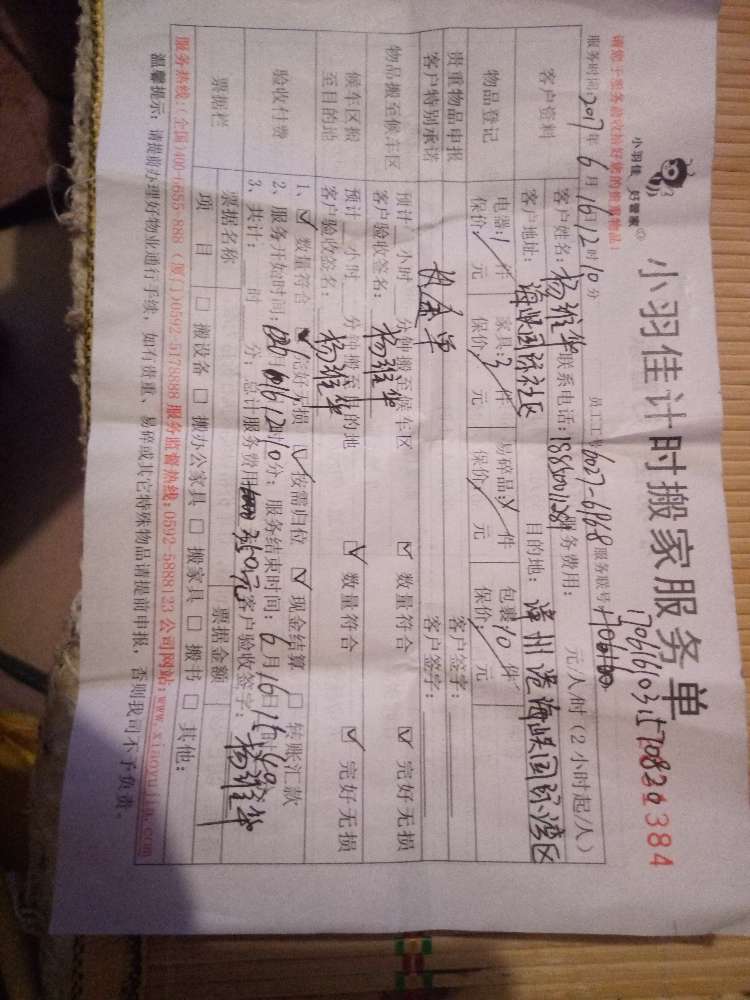 小羽佳 好管家
小羽佳计时搬家服务单
请您于服务验收后付好您的贵重物品!
服务时间:2017年6月16日12时10分 员工工号6027-6968服务联号
170616103157082
客户资料
客户姓名:杨维华 联系电话: 服务费用: 元/人/时(2小时起/人)
客户地址:海峡国际社区 目的地:漳州港海峡国际湾区
物品登记
电器:1件 家具:3件 易碎品:X件 包裹10件
保价:/元 保价:/元 保价:/元 保价:/元
贵重物品申报 客户签字:
客户特别承诺 客户签字:
物品搬至候车区
预计__小时__分钟搬至候车区 ☑ 数量符合 ☑ 完好无损
客户验收签名:杨维华
候车区搬至目的地
预计__小时__分钟搬至目的地 ☑ 数量符合 ☑ 完好无损
客户验收签名:杨维华
验收付费
1、☑ 数量符合 ☑ 完好无损 ☑ 按需归位 ☑ 现金结算 □ 转账汇款
2、服务开始时间: 12时10分;服务结束时间:6月16日
3、共计: 时 分;总计服务费用 350元 客户验收签字:杨维华
票据栏
票据名称 票据金额
项目 □ 搬设备 □ 搬办公家具 □ 搬家具 □ 搬书 □ 其他:
服务热线:(全国)400-1655-888 (厦门)0592-5178888 服务监督热线:0592-5888123 公司网站:www.xiaoyujia.com
温馨提示:请提前办理好物业通行手续,如有贵重、易碎或其它特殊物品请提前申报,否则我司不予负责。